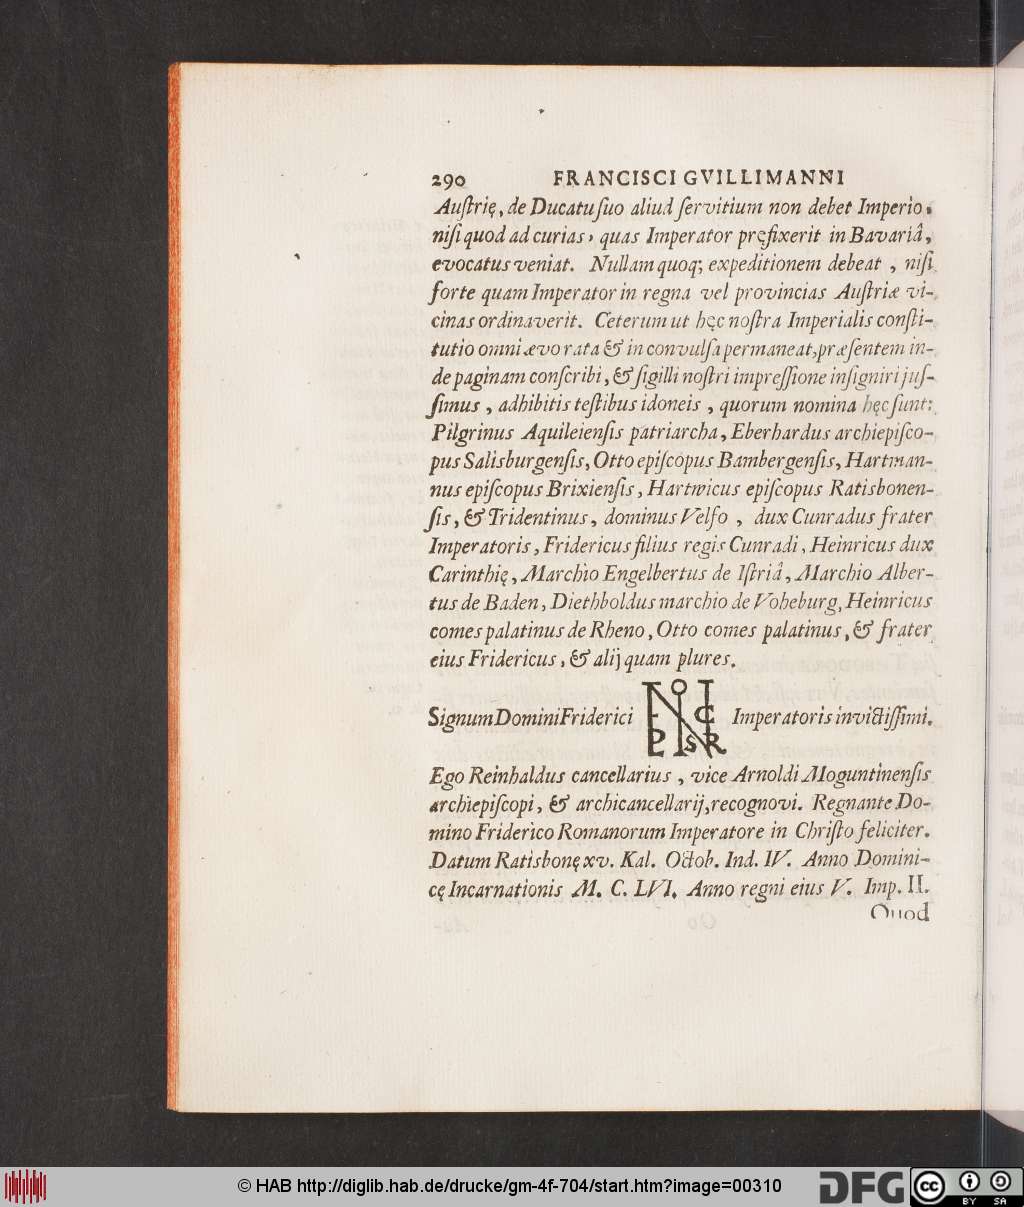 290 FRANCISCI GVILLIMANNI
Auſtrię, de Ducatu ſuo aliud ſervitium non debet Imperio,
niſi quod ad curias, quas Imperator pręfixerit in Bavariâ,
evocatus veniat. Nullam quoq; expeditionem debeat , niſi
forte quam Imperator in regna vel provincias Auſtriæ vi-
cinas ordinaverit. Ceterum ut hęc noſtra Imperialis conſti-
tutio omni ævo rata & in convulſa permaneat, præſentem in-
de paginam conſcribi, & ſigilli noſtri impreſſione inſigniri juſ-
ſimus , adhibitis teſtibus idoneis , quorum nomina hęc ſunt:
Pilgrinus Aquileienſis patriarcha, Eberhardus archiepiſco-
pus Salisburgenſis, Otto epiſcopus Bambergenſis, Hartman-
nus epiſcopus Brixienſis, Hartwicus epiſcopus Ratisbonen-
ſis, & Tridentinus, dominus Velfo , dux Cunradus frater
Imperatoris, Fridericus filius regis Cunradi, Heinricus dux
Carinthię, Marchio Engelbertus de Iſtriâ, Marchio Alber-
tus de Baden, Diethboldus marchio de Voheburg, Heinricus
comes palatinus de Rheno, Otto comes palatinus, & frater
eius Fridericus, & alij quam plures.
Signum Domini Friderici Imperatoris invictiſſimi.
Ego Reinhaldus cancellarius , vice Arnoldi Moguntinenſis
archiepiſcopi, & archicancellarij, recognovi. Regnante Do-
mino Friderico Romanorum Imperatore in Chriſto feliciter.
Datum Ratisbonę xv. Kal. Octob. Ind. IV. Anno Domini-
cę Incarnationis M. C. LVI. Anno regni eius V. Imp. II.
Quod
© HAB http://diglib.hab.de/drucke/gm-4f-704/start.htm?image=00310
DFG
cc BY SA